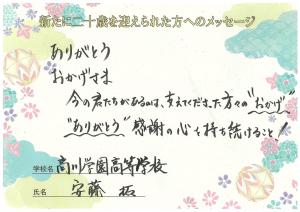 新たに二十歳を迎えられた方へのメッセージ
ありがとう
おかげさま
今の君たちがあるのは、支えてくださった方々の"おかげ"
"ありがとう"感謝の心を持ち続けること!
学校名 高川学園高等学校
氏名 安藤 拓